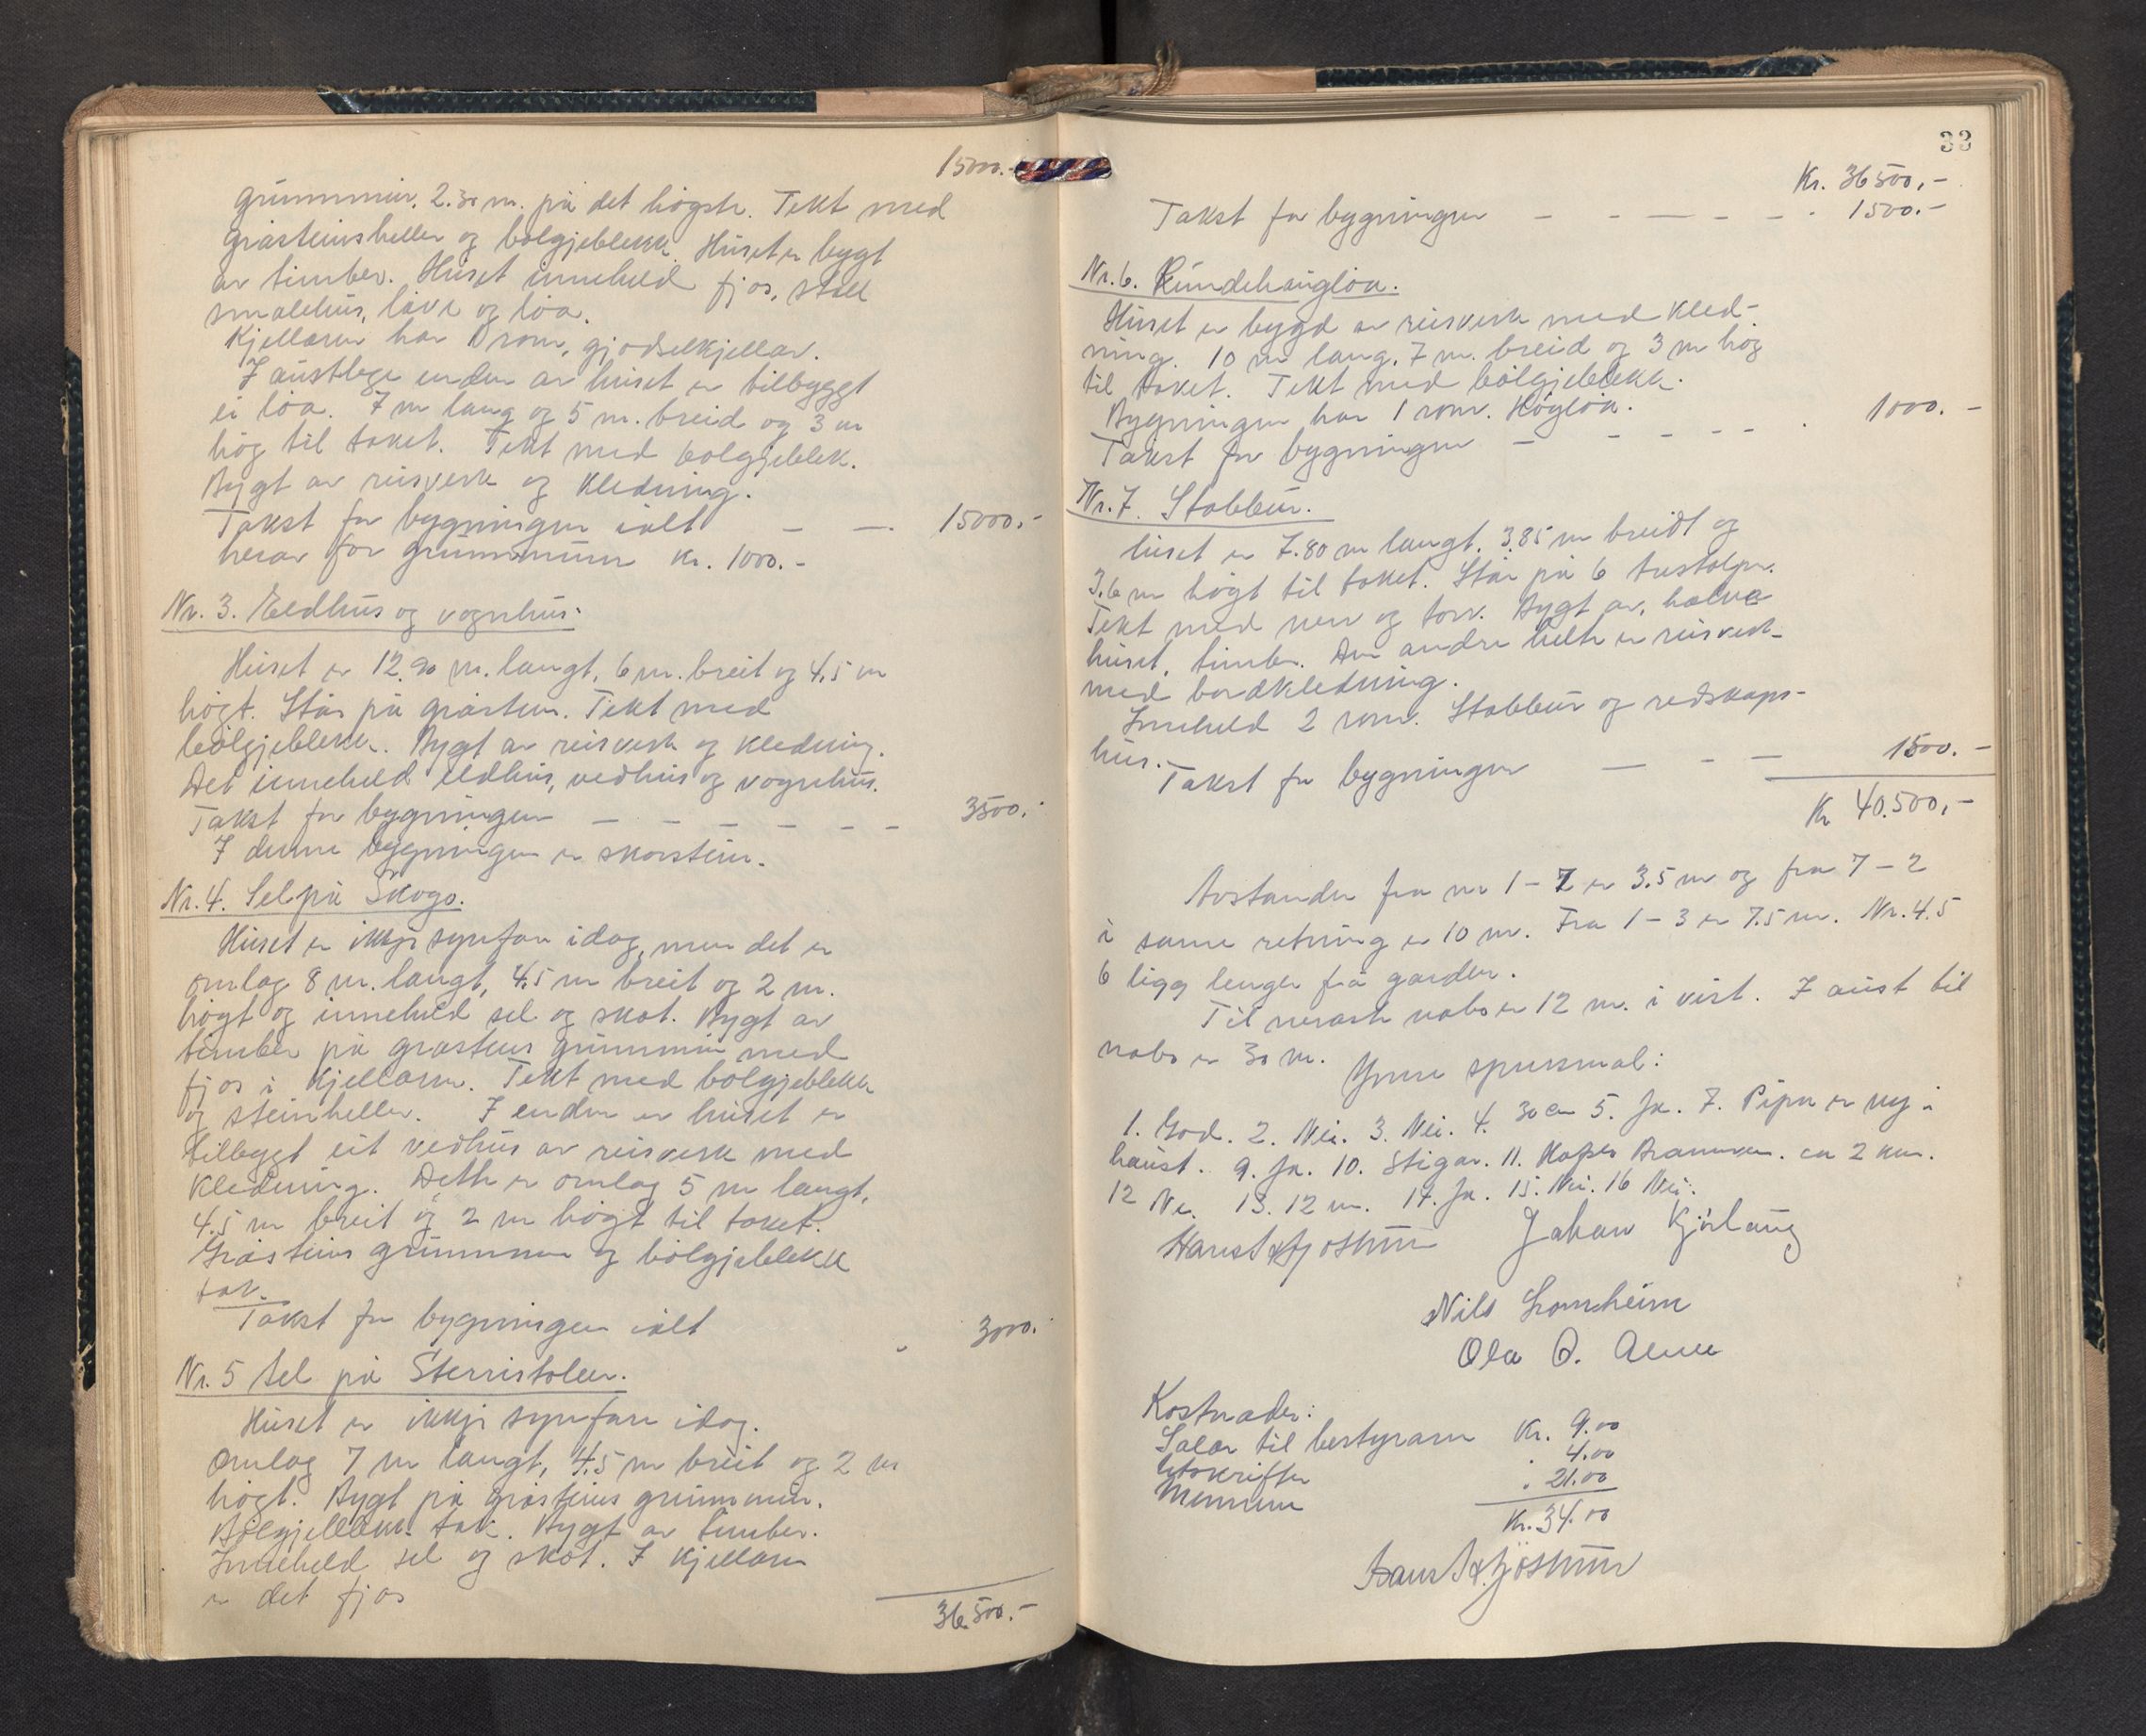 15000.-
grunnmur. 2.30 m. på det høgste. Tekt med
gråsteinsheller og bølgjeblekk. Huset er bygt
av timber. Huset inneheld fjos, stall
smalehus, låve og løa.
Kjellaren har 1 rom, gjødselkjellar.
I austlege enden av huset er tilbyggt
ei løa. 7 m lang og 5 m. breid og 3 m
høg til taket. Tekt med bølgjeblek.
Bygt av reisverk og kledning.
Takst for bygningen ialt — — 15000.-
herav for grunnmuren kr. 1000.-
Nr. 3. Eldhus og vognhus:
Huset er 12.90 m. langt, 6 m. breit og 4,5 m
høgt. Står på gråstein. Tekt med
bølgjeblekk. Bygt av reisverk og kledning.
Det inneheld eldhus, vedhus og vognhus.
Takst for bygningen — — — — — — 3500.-
I denne bygningen er skorstein.
Nr. 4. Sel på Skogs.
Huset er ikkje synfare idag, men det er
omlag 8 m. langt, 4,5 m breit og 2 m.
høgt og inneheld sel og skot. Bygt av
timber på gråsteins grunnmur med
fjos i kjellaren. Tekt med bølgjeblekk
og steinheller. I enden av huset er
tilbyggt eit vedhus av reisverk med
kledning. Dette er omlag 5 m langt,
4.5 m breit og 2 m høgt til taket.
Gråsteins grunnmur og bølgjeblekk
tak.
Takst for bygningen ialt 3000.-
Nr. 5 Sel på Sterristølen.
Huset er ikkje synfare idag.
Omlag 7 m langt, 4.5 m breit og 2 m
høgt. Bygt på gråsteins grunnmur.
Bølgjeblekk tak. Bygt av timber.
Inneheld sel og skot. I kjellaren
er det fjos
36.500.-
33
Kr. 36500,-
Takst for bygningen — — — — — 1500.-
Nr. 6. Rundehaugløa.
Huset er bygd av reisverk med kled-
ning. 10 m lang, 7 m. breid og 3 m høg
til taket. Tekt med bølgjeblekk.
Bygningen har 1 rom. Høyløa.
Takst for bygningen — — — — — 1000.-
Nr. 7. Stabbur.
huset er 7.80 m langt, 3,85 m breidt og
3.6 m høgt til taket. Står på 6 trestolpar.
Tekt med never og torv. Bygt av, halve
huset, timber. Den andre helte er reisverk
med bordkledning.
Inneheld 2 rom. Stabbur og redskaps-
hus.
Takst for bygningen — — — 1500.-
Kr 40.500,-
Avstanden fra nr 1 - 7 er 3.5 m og fra 7 - 2
i same retning er 10 m. Fra 1 - 3 er 7.5 m. Nr. 4.5
6 ligg lenger frå garden.
Til neraste nabo er 12 m. i vest. I aust til
nabo er 30 m.
Ymse spursmål:
1. God. 2. Nei. 3. Nei. 4. 30 cm 5. Ja. 7. Pipa er ny i
haust. 9. Ja. 10. Stigar. 11. ca 2 km.
12 Nei. 13. 12 m. 14. Ja. 15. Nei. 16 Nei.
Johan Kjørlaug
Nils Lomheim
Ola O.
Kostnader:
Salær til bestyraren Kr. 9.00
Utskrifter 4.00
Mennene " 21.00
Kr. 34.00